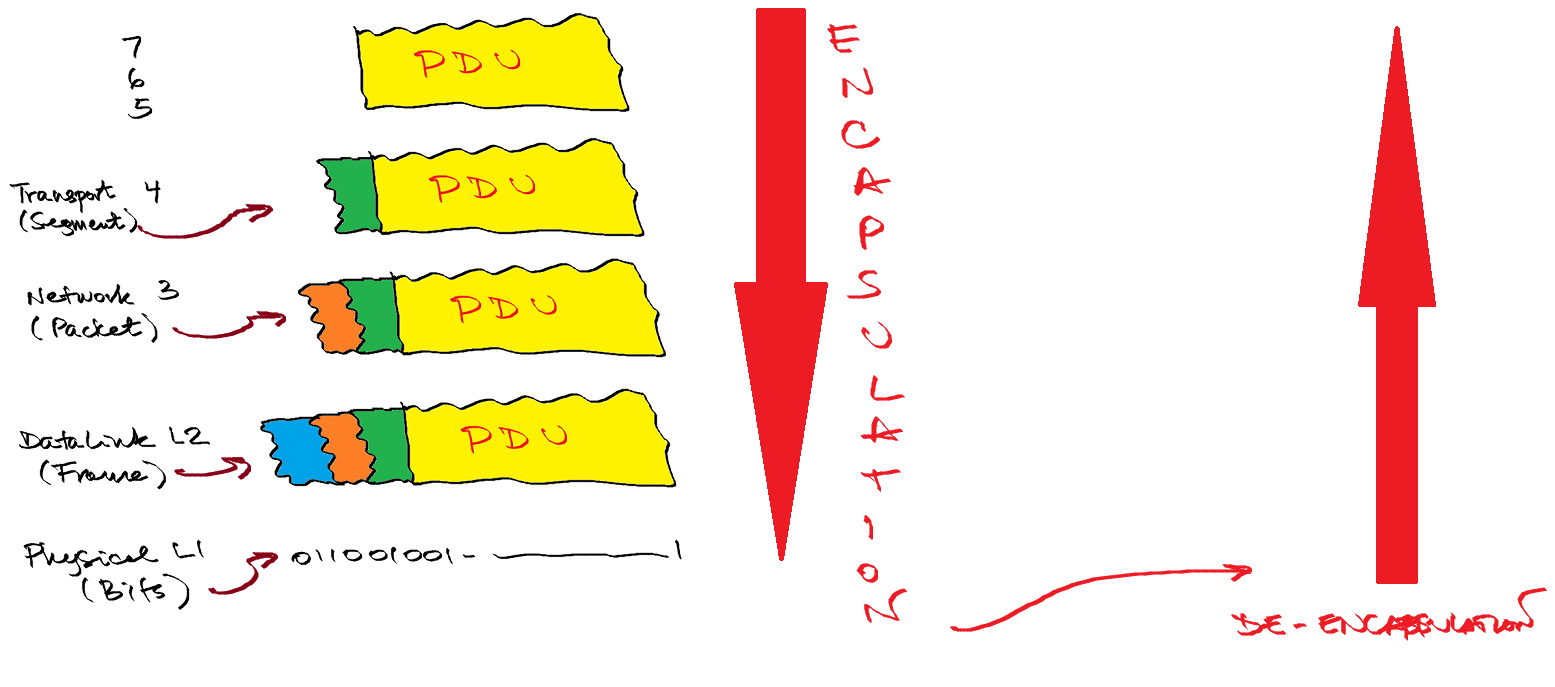 7
6
5
PDU
Transport 4
(Segment)
PDU
Network 3
(Packet)
PDU
DataLink L2
(Frame)
PDU
Physical L1
(Bits)
011001001- 1
ENCAPSULATION
DE-ENCAPSULATION